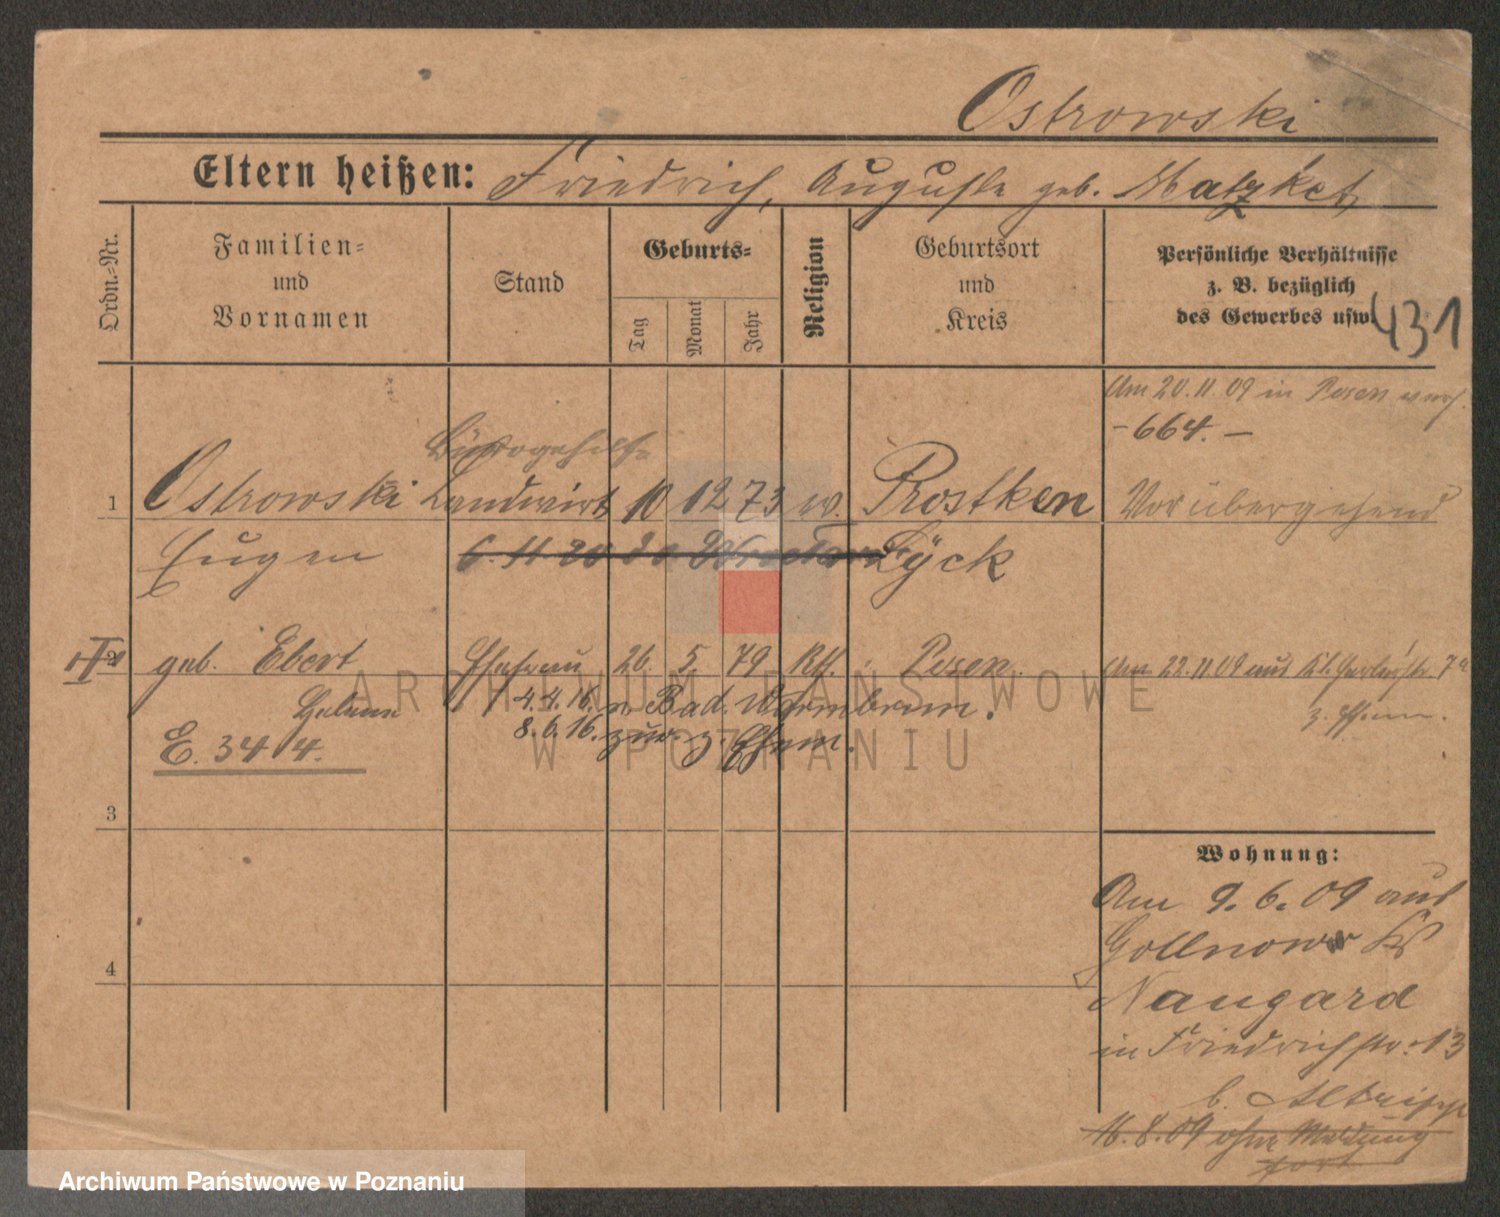 Ostrowski
Eltern heißen: Friedrich, Auguste geb.
Ordn.-Nr.
Familien-
und
Vornamen
Stand
Geburts-
Tag
Monat
Jahr
Religion
Geburtsort
und
Kreis
Persönliche Verhältnisse
z. B. bezüglich
des Gewerbes usw.
431
Am 20.11.09 in Posen
-664.-
Bürogehilfe
1 Ostrowski Landwirt 10 12 73 ev. Prostken Vorübergehend
Eugen Lyck
2 geb. Ebert Ehefrau 26. 5. 79 Kth. Posen. Am 22.11.09 aus
Helene 4.4.16. n. Bad. Warmbrunn.
z. Ehem.
E. 3414. 8.6.16. zur. z. Ehem.
ARCHIWUM PAŃSTWOWE
W POZNANIU
3
Wohnung:
Am 9.6.09 aus
4 Gollnow Ks
Naugard
in Friedrichstr. 13
b.
16.8.09 ohne Meldung
fort
Archiwum Państwowe w Poznaniu